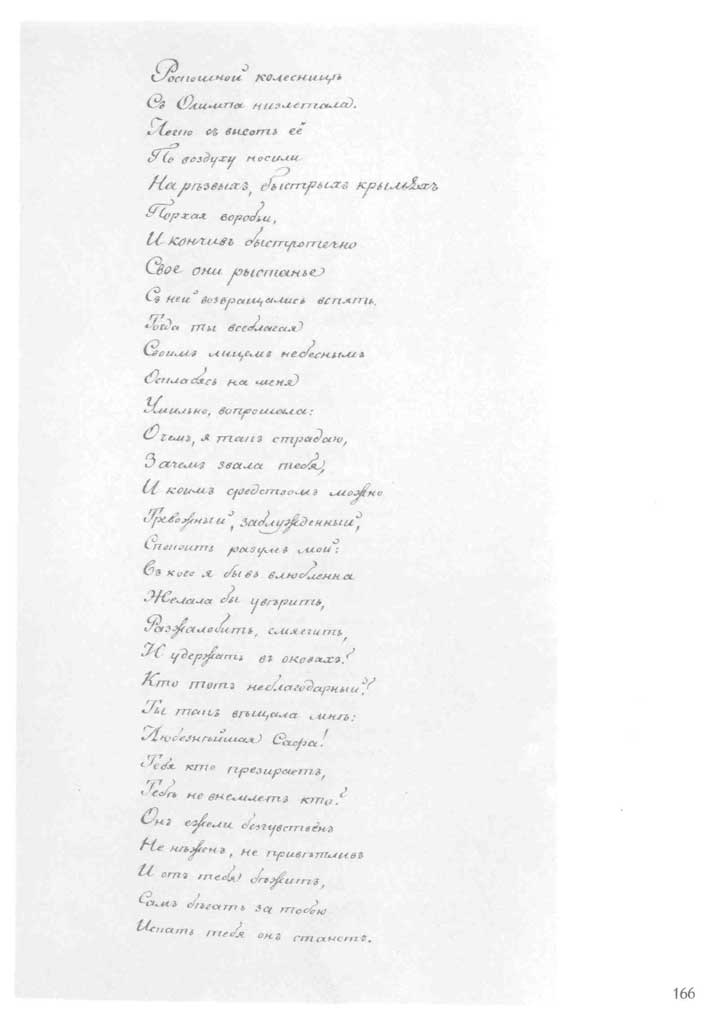 Роскошной колесницѣ
Съ Олимпа низлетала.
Легко съ высотъ её
По воздуху носили
На рѣзвыхъ, быстрыхъ крыльяхъ
Порхая воробьи,
И кончивъ быстротечно
Свое они рыстанье
Съ ней возвращались вспять.
Тогда ты всеблагая
Своимъ лицемъ небеснымъ
Осклабясь на меня
Умильно, вопрошала:
О чемъ, я такъ страдаю,
Зачемъ звала тебя,
И коимъ средствомъ можно
Тревожный, заблужденный,
Спокоить разумъ мой:
Въ кого я бывъ влюбленна
Желала бы увѣрить,
Разжалобить, смягчить,
И удержать въ оковахъ?
Кто тотъ неблагодарный?
Ты такъ вѣщала мнѣ:
Любезнѣйшая Сафа!
Тебя кто презираетъ,
Тебѣ не внемлетъ кто?
Онъ ежели безчувственъ
Не нѣженъ, не привѣтливъ
И отъ тебя бѣжитъ,
Самъ бѣгать за тобою
Искать тебя онъ станетъ.
166